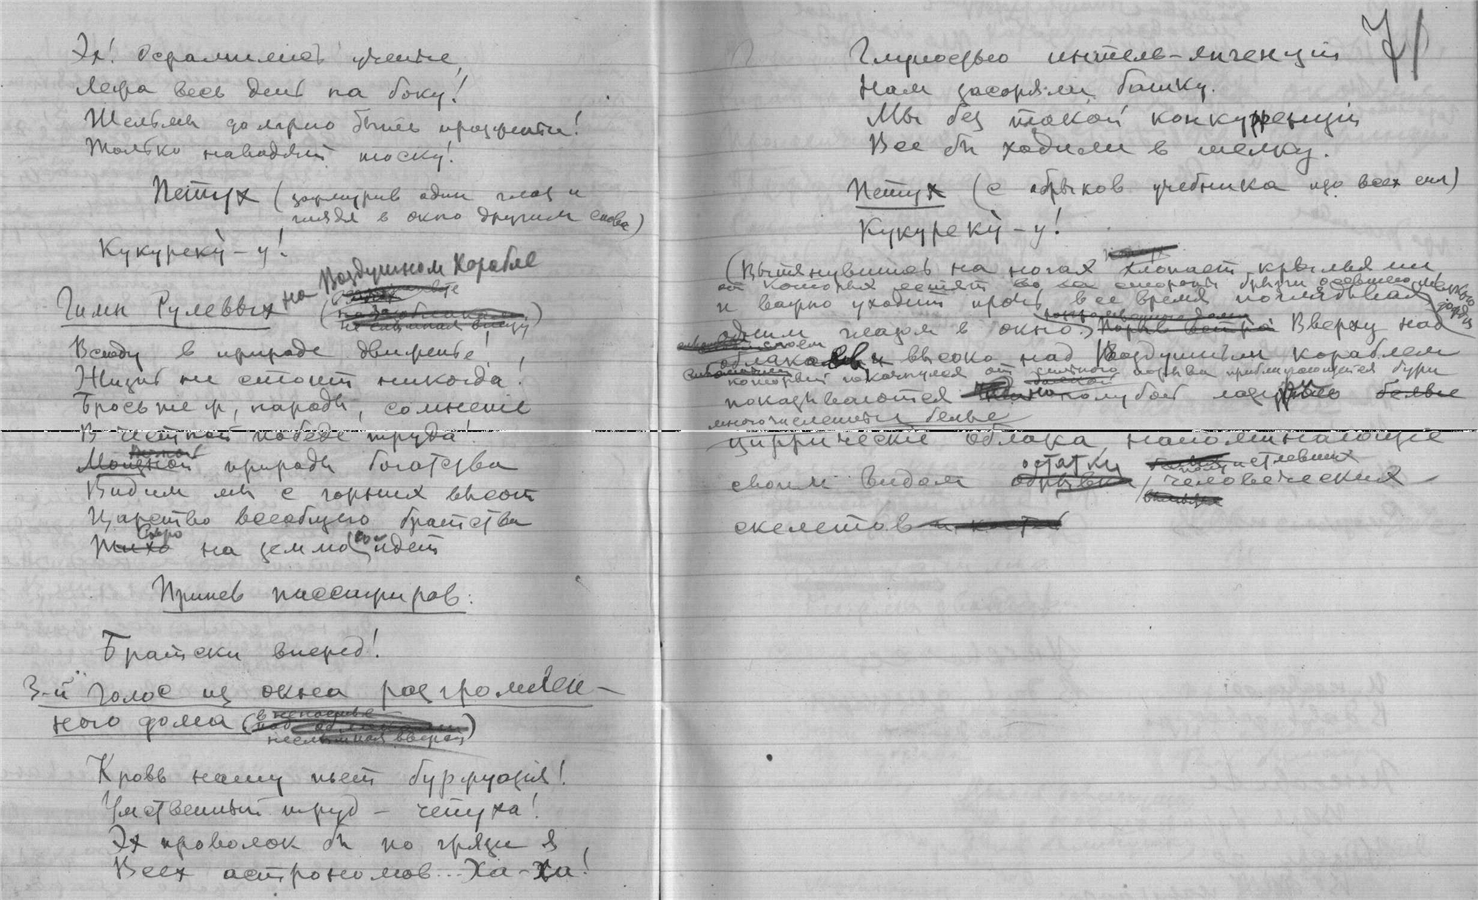 Эх! осрамились ученье,
Лежа весь день на боку!
Желтым должно быть
Только наводят тоску!
Петух (зажмурив один глаз и
глядя в окно другим снова)
Кукуреку̀-у!
Гимн Рулевых на Воздушном Корабле
Всюду в природе движенье!
Жизнь не стоит никогда!
Бросьте ж, народы, сомненіе
В честной победе труда!
Мощной природы богатства
Видим мы с горних высот
Царство всеобщего братства
Скоро на землю сойдет
Припев пассажиров:
Братски вперед!
3-й Голос из окна разгромлен-
ного дома
Кровь нашу пьет буржуазія!
Умственный труд – чепуха!
Эх проволок бы по грязи я
Всех астрономов... Ха-ха!
71
Глупостью интель-лигенціи
Нам засоряли башку.
Мы без такой конкурренціи
Все бы ходили в шелку.
Петух (с обрывков учебника изо всех сил)
Кукуреку̀-у!
(Вытянувшись на ногах хлопает крыльями
от которых летят во все стороны брызги
и важно уходит прочь все время поглядывая
одним глазом в окно) Вверху над
облаками и высоко над Воздушным кораблем
который покачнулся от порыва приближающейся бури
показываются голубой
многочисленныя белыя
циррические облака напоминающіе
своим видом остатки истлевших человеческих
скелетов